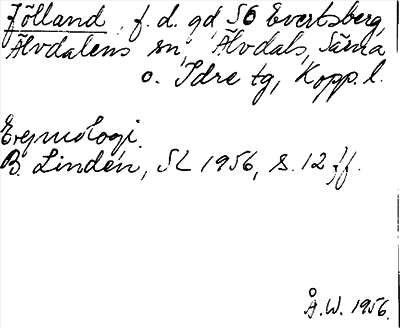 Jölland, f. d. gd, SO Evertsberg,
Älvdalens sn, Älvdals, Särna
o. Idre tg, Kopp. l.
Etymologi.
B. Lindén, SL 1956, s. 12 ff.
Å. W. 1956.